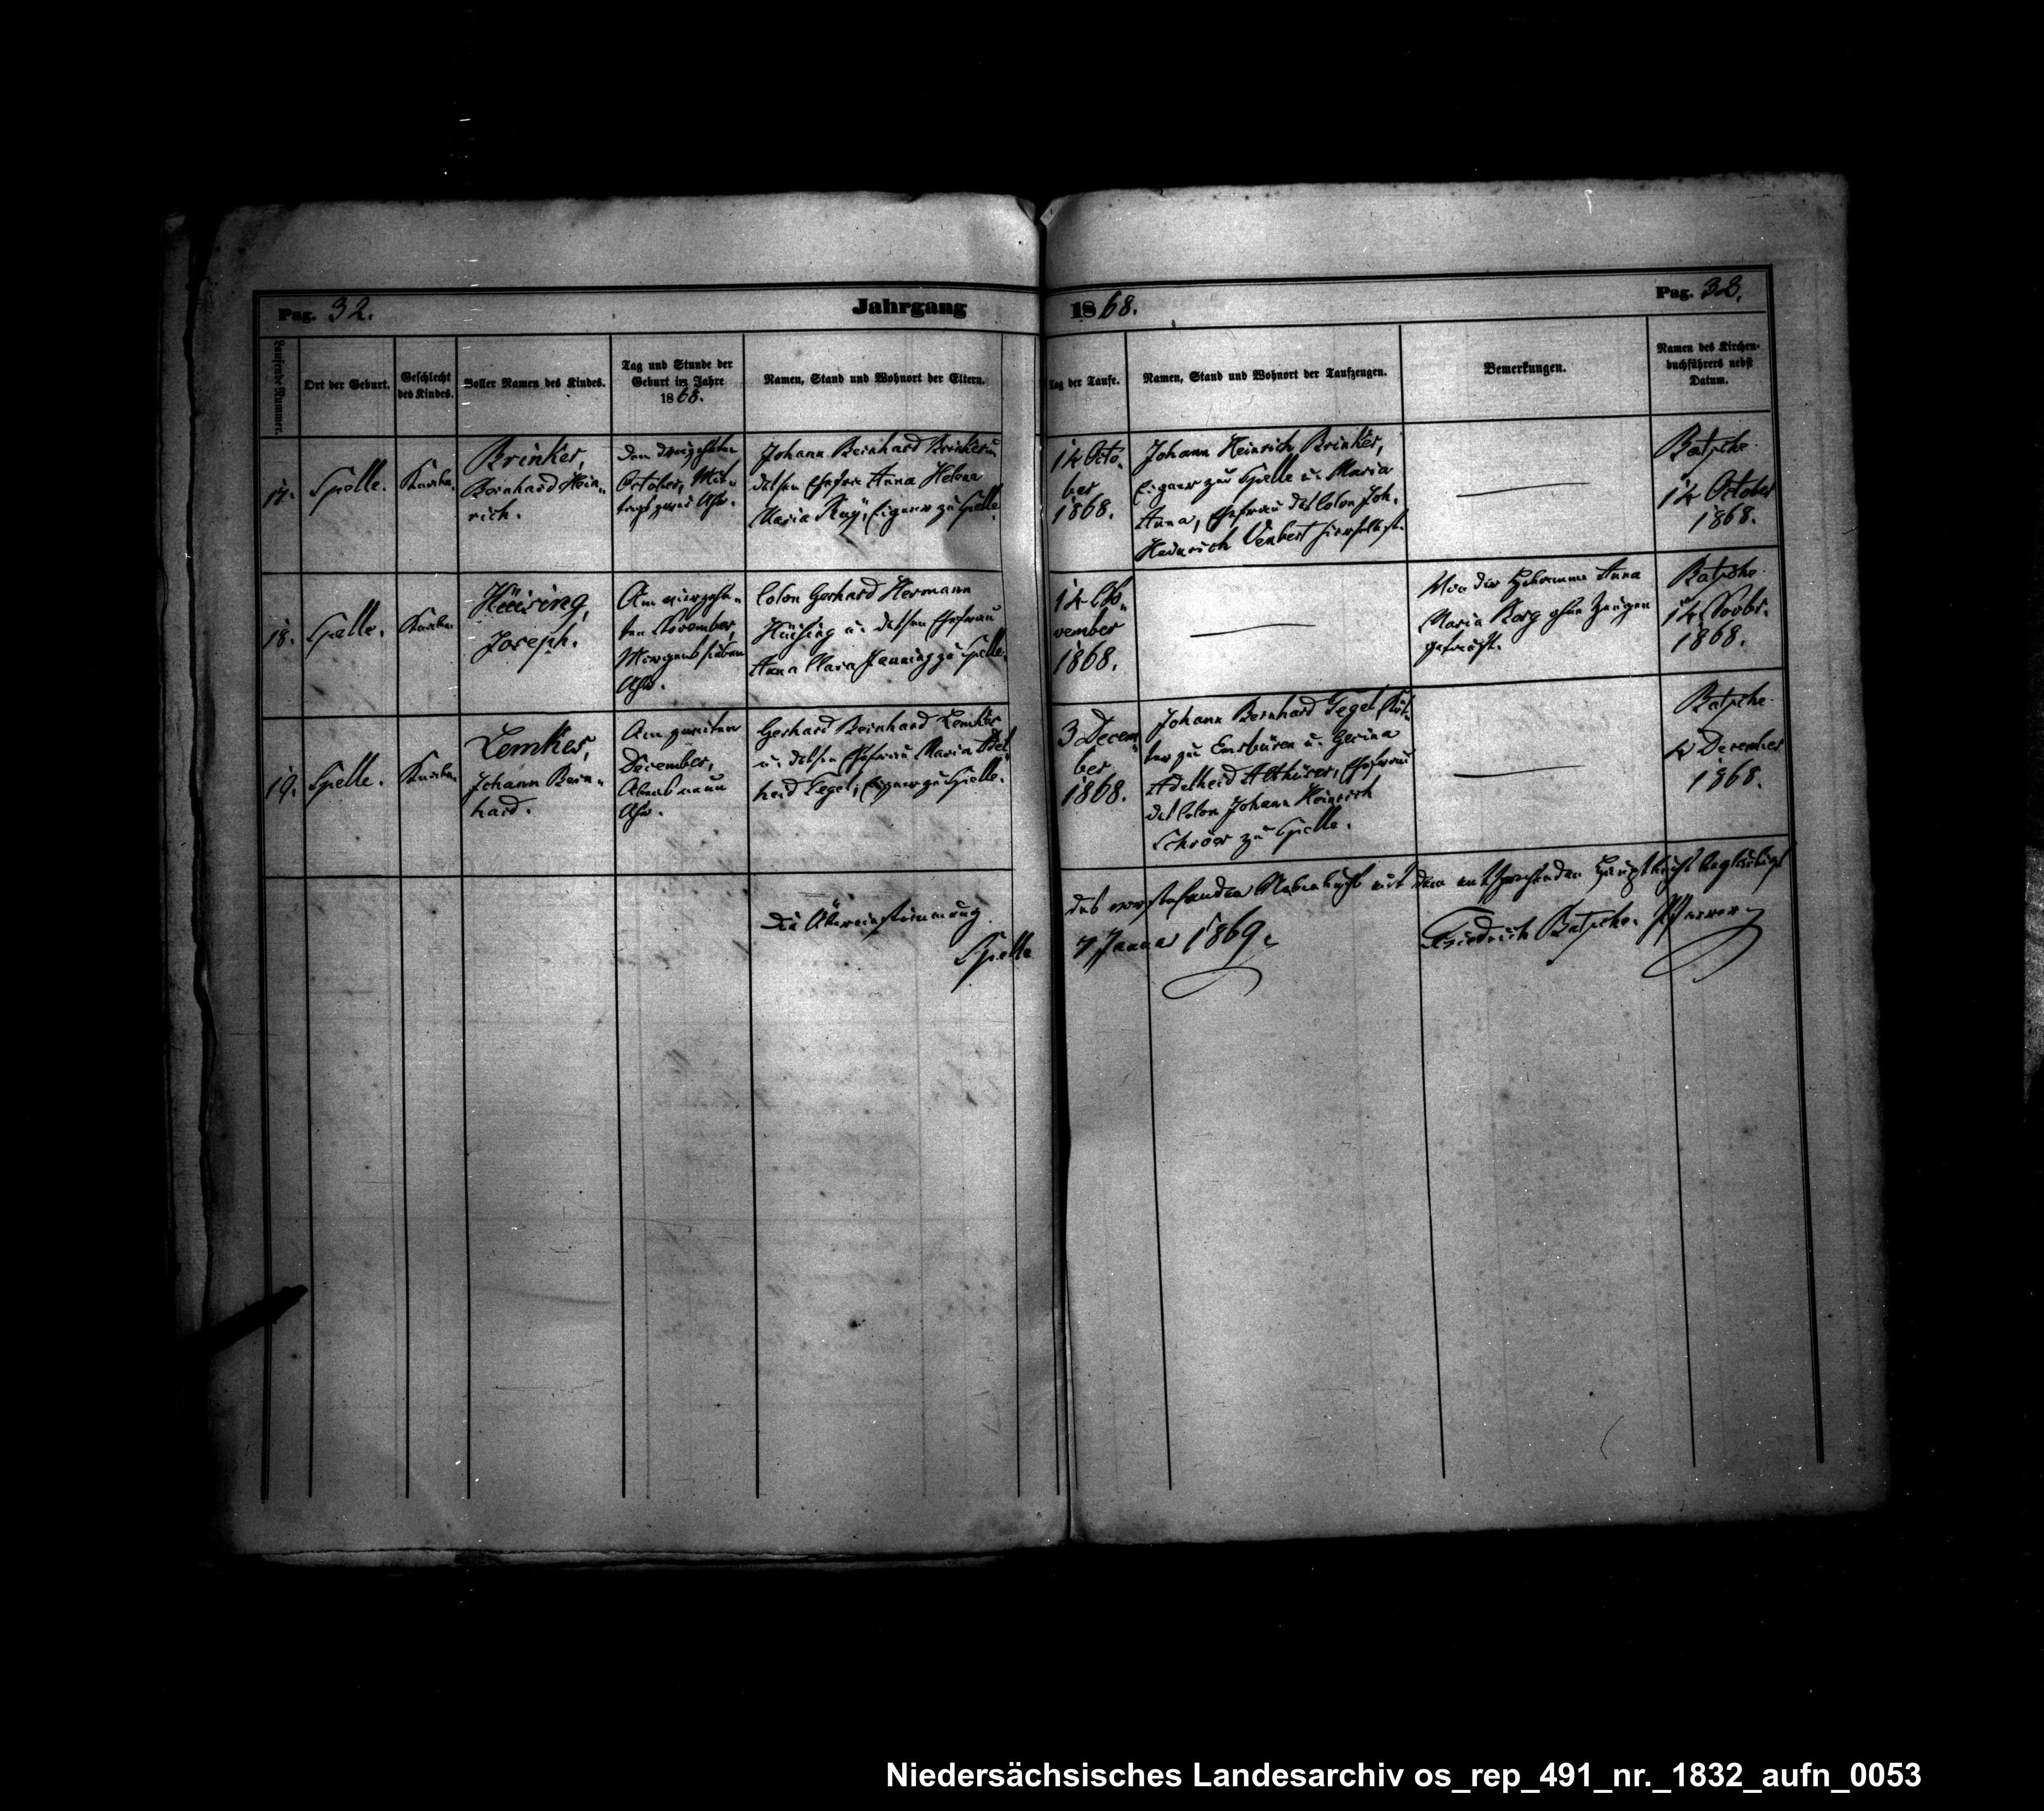 Pag. 32.
Jahrgang
1868.
Pag. 32.
Laufende Nummer.
Ort der Geburt.
Geschlecht
des Kindes.
Voller Namen des Kindes.
Tag und Stunde der
Geburt im Jahre
1868.
Namen, Stand und Wohnort der Eltern.
Tag der Taufe.
Namen, Stand und Wohnort der Taufzeugen.
Bemerkungen.
Namen des Kirchen-
buchführers nebst
Datum.
17.
Spelle.
Knabe.
Brinker,
Bernhard Hein-
rich.
Den dreizehnten
October, Mit-
tags zwei Uhr.
Johann Bernhard Brinker u.
dessen Ehefrau Anna Helena
Maria Eigener zu Spelle.
14 Octo-
ber
1868.
Johann Heinrich Brinker,
Eigener zu Spelle u. Maria
Anna, Ehefrau des Colon Joh.
Heinrich hierselbst.
Batsche.
14 October
1868.
18.
Spelle.
Knabe.
Hüsing,
Joseph.
Am vierzehn-
ten November,
Morgens sieben
Uhr.
Colon Gerhard Hermann
Hüsing u. dessen Ehefrau
Anna Maria Janning zu Spelle.
14 No-
vember
1868.
Von der Hebamme Anna
Maria Borg ohne Zeugen
getauft.
Batsche.
14 Novbr.
1868.
19.
Spelle.
Knabe.
Lemker,
Johann Bern-
hard.
Am zweiten
December,
Abends neun
Uhr.
Gerhard Bernhard Lemker
u. dessen Ehefrau Maria Adel
heid Tegel, Eigener zu Spelle.
3 Decem
ber
1868.
Johann Bernhard Tegel, Köt-
ter zu Emsbüren u. Gesina
Adelheid Ehefrau
des Colon Johann Heinrich
Schröer zu Spelle.
Batsche.
4 December
1868.
Die Übereinstimmung
des vorstehenden Nebenbuchs mit dem entsprechenden Hauptbuch beglaubigt
Spelle
7 Januar 1869.
Friedrich Batsche. Pfarrer
Niedersächsisches Landesarchiv os_rep_491_nr._1832_aufn_0053